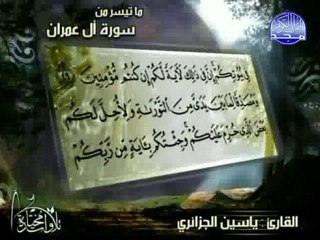 ما تيسر من
سورة آل عمران
فِي بُيُوتِكُمْ إِنَّ فِي ذَٰلِكَ لَآيَةً لَكُمْ إِن كُنتُم مُّؤْمِنِينَ
وَمُصَدِّقًا لِّمَا بَيْنَ يَدَيَّ مِنَ التَّوْرَاةِ وَلِأُحِلَّ لَكُم
بَعْضَ الَّذِي حُرِّمَ عَلَيْكُمْ وَجِئْتُكُم بِآيَةٍ مِّن رَّبِّكُمْ
القارئ: ياسين الجزائري